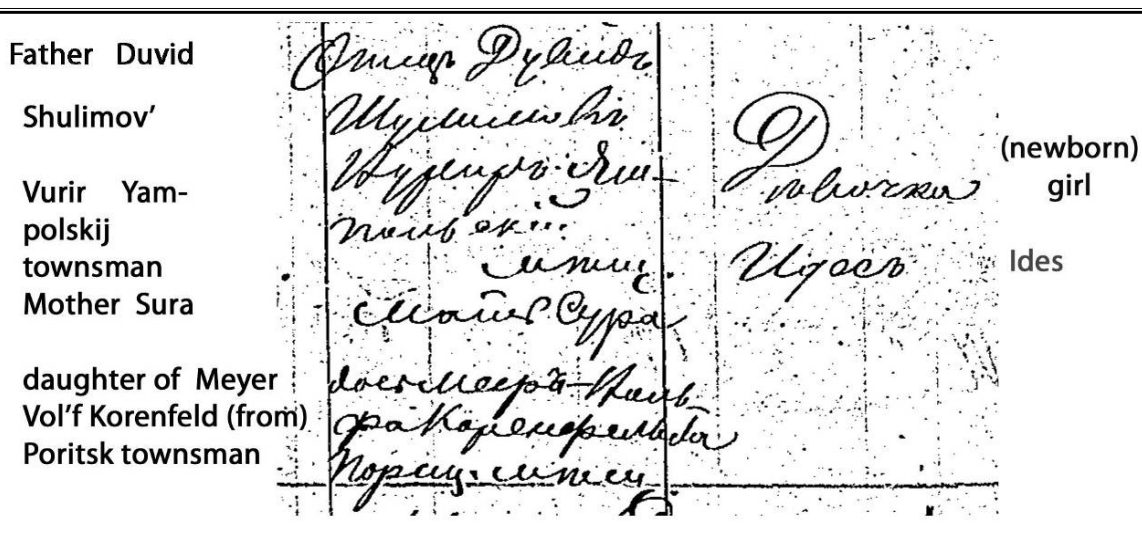 Father Duvid
Shulimov'
Vurir Yam-
polskij
townsman
Mother Sura
daughter of Meyer
Vol'f Korenfeld (from)
Poritsk townsman
Отецъ Дувидъ
Шулимовъ
Вуриръ Ям-
польскій
мѣщ.
Мать Сура
дочь Меера-Воль-
фа Коренфельда
Мѣщ.
Дѣвочка
Идесъ
(newborn)
girl
Ides